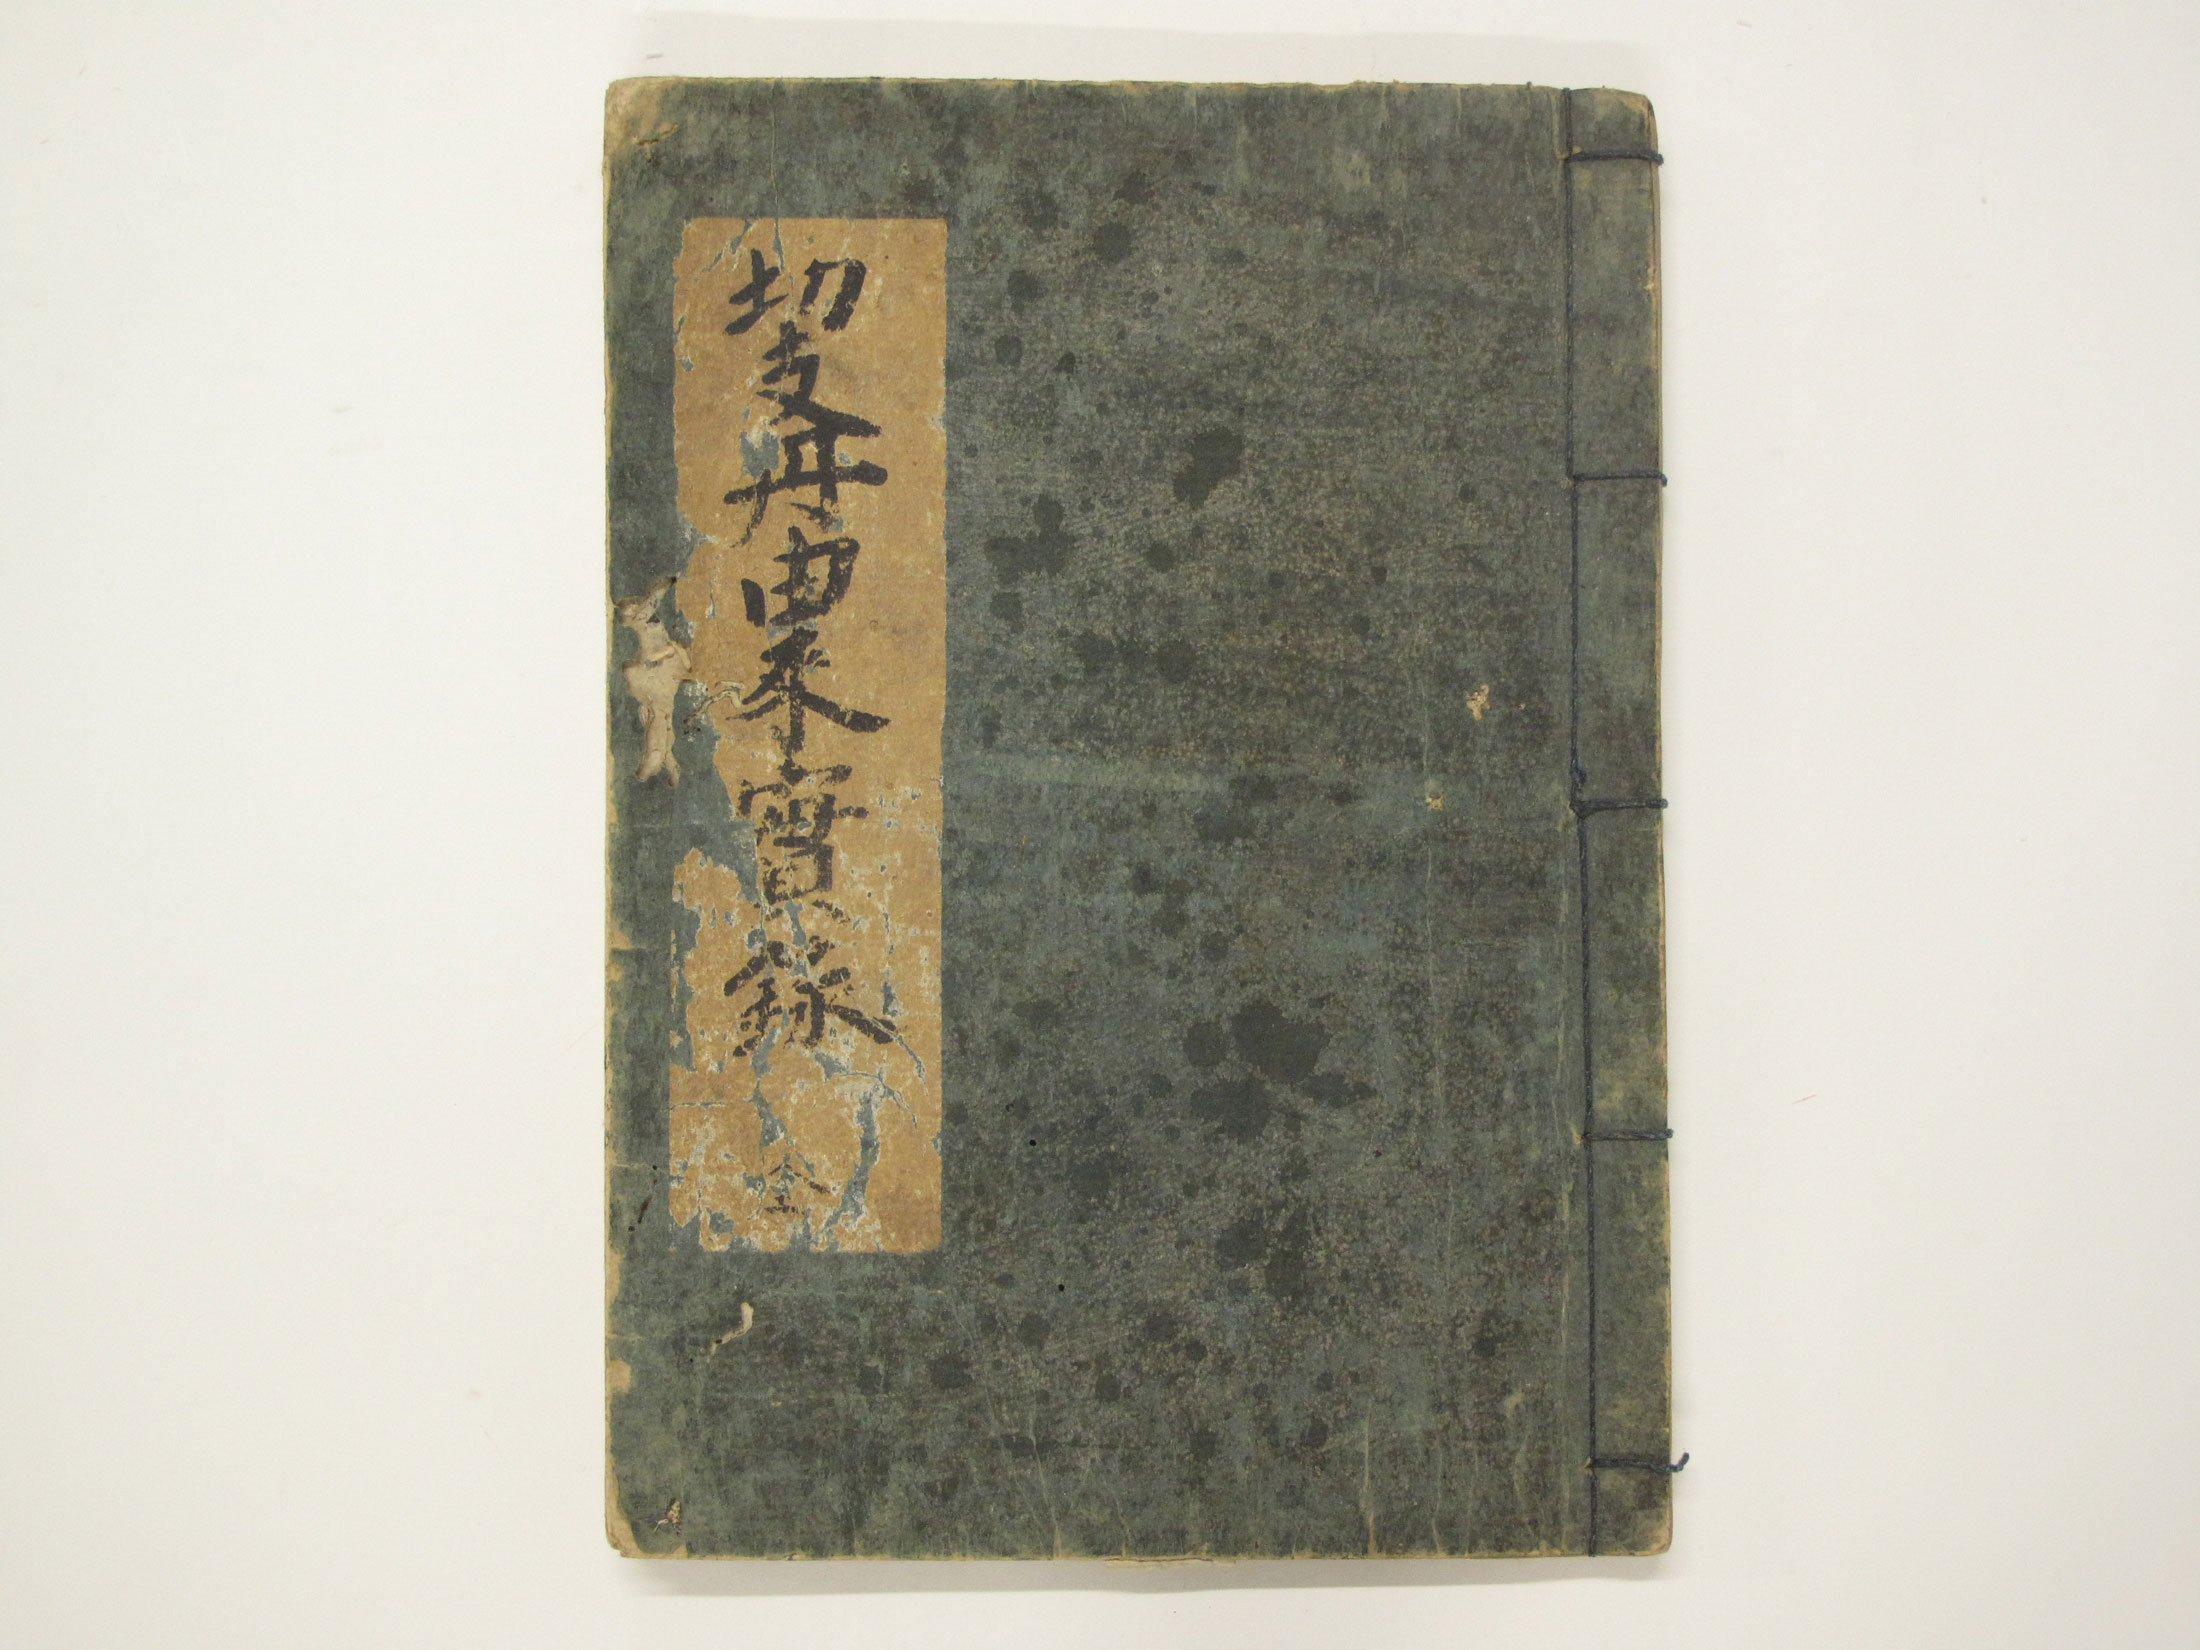 切支丹由来實録 全